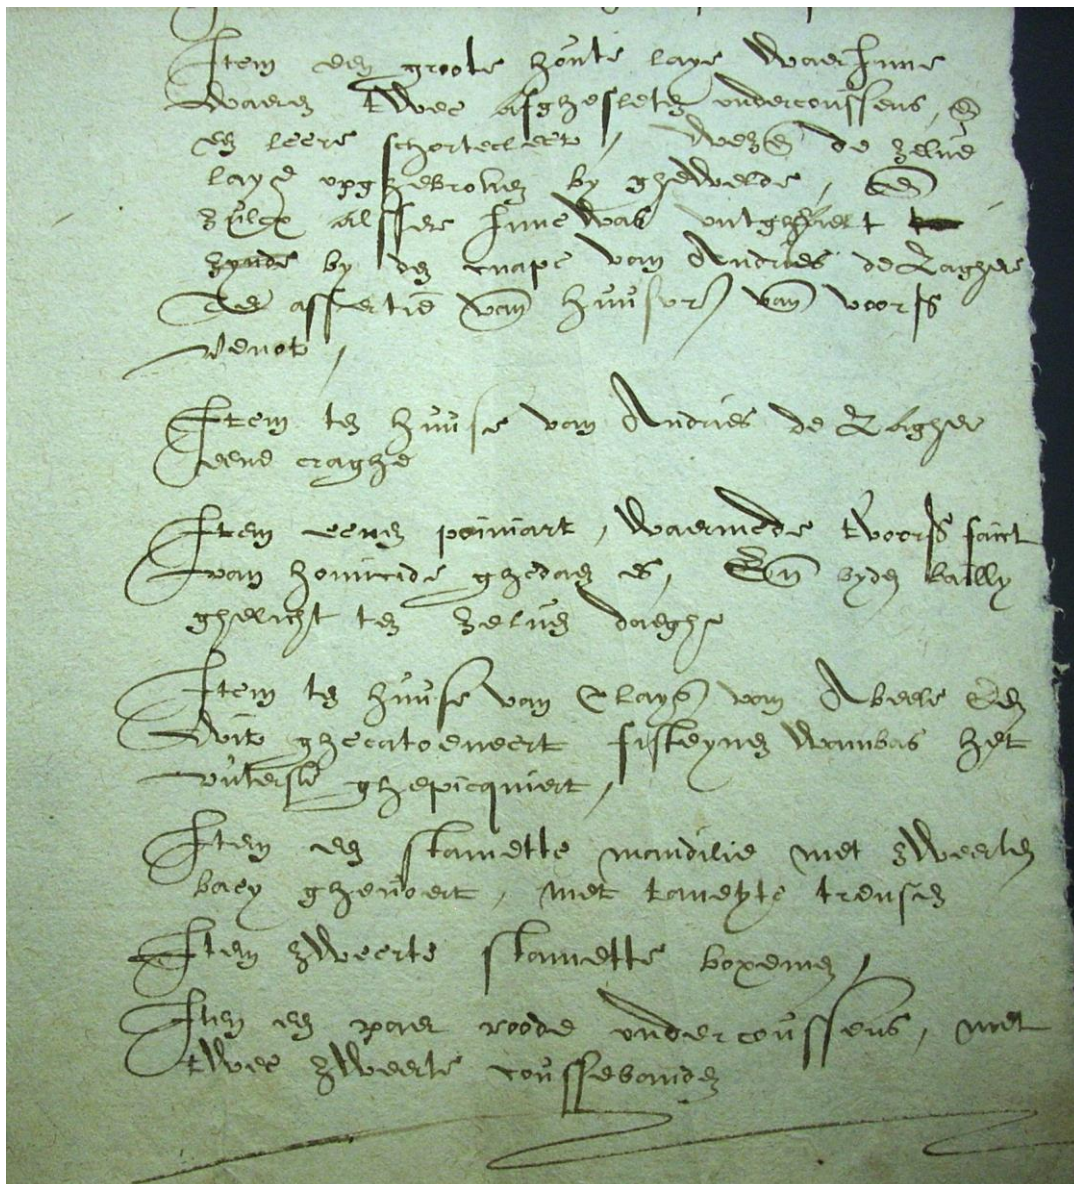 Item een groote houte laye waer inne
waren twee afghesleten ondercoussens, en
een leere schortecleet, wezen de zelve
laye upghebroken by ghewelde, en
zulcx alsser inne was uutghehaert
zynde by den cnape van Andries de Zaghere
te assertie van huusvr van voors
Item ten huuse van Andries de Zaghere
eene craghe
Item eenen poinjart, waermede tvoors faict
van homicide ghedaen es, En byden bailly
ghelicht ten zelven daeghe
Item ten huuse van Clays van Abeele Een
wit ghecatoeneert fusteynen wambas het
uuterste ghepicquiert,
Item een stamette mandilie met zweerten
baey ghevoert, met taneyte treusen
Item zweerte stamette boxemen,
Item een paer roode ondercoussens, met
twee zweerte coussebanden